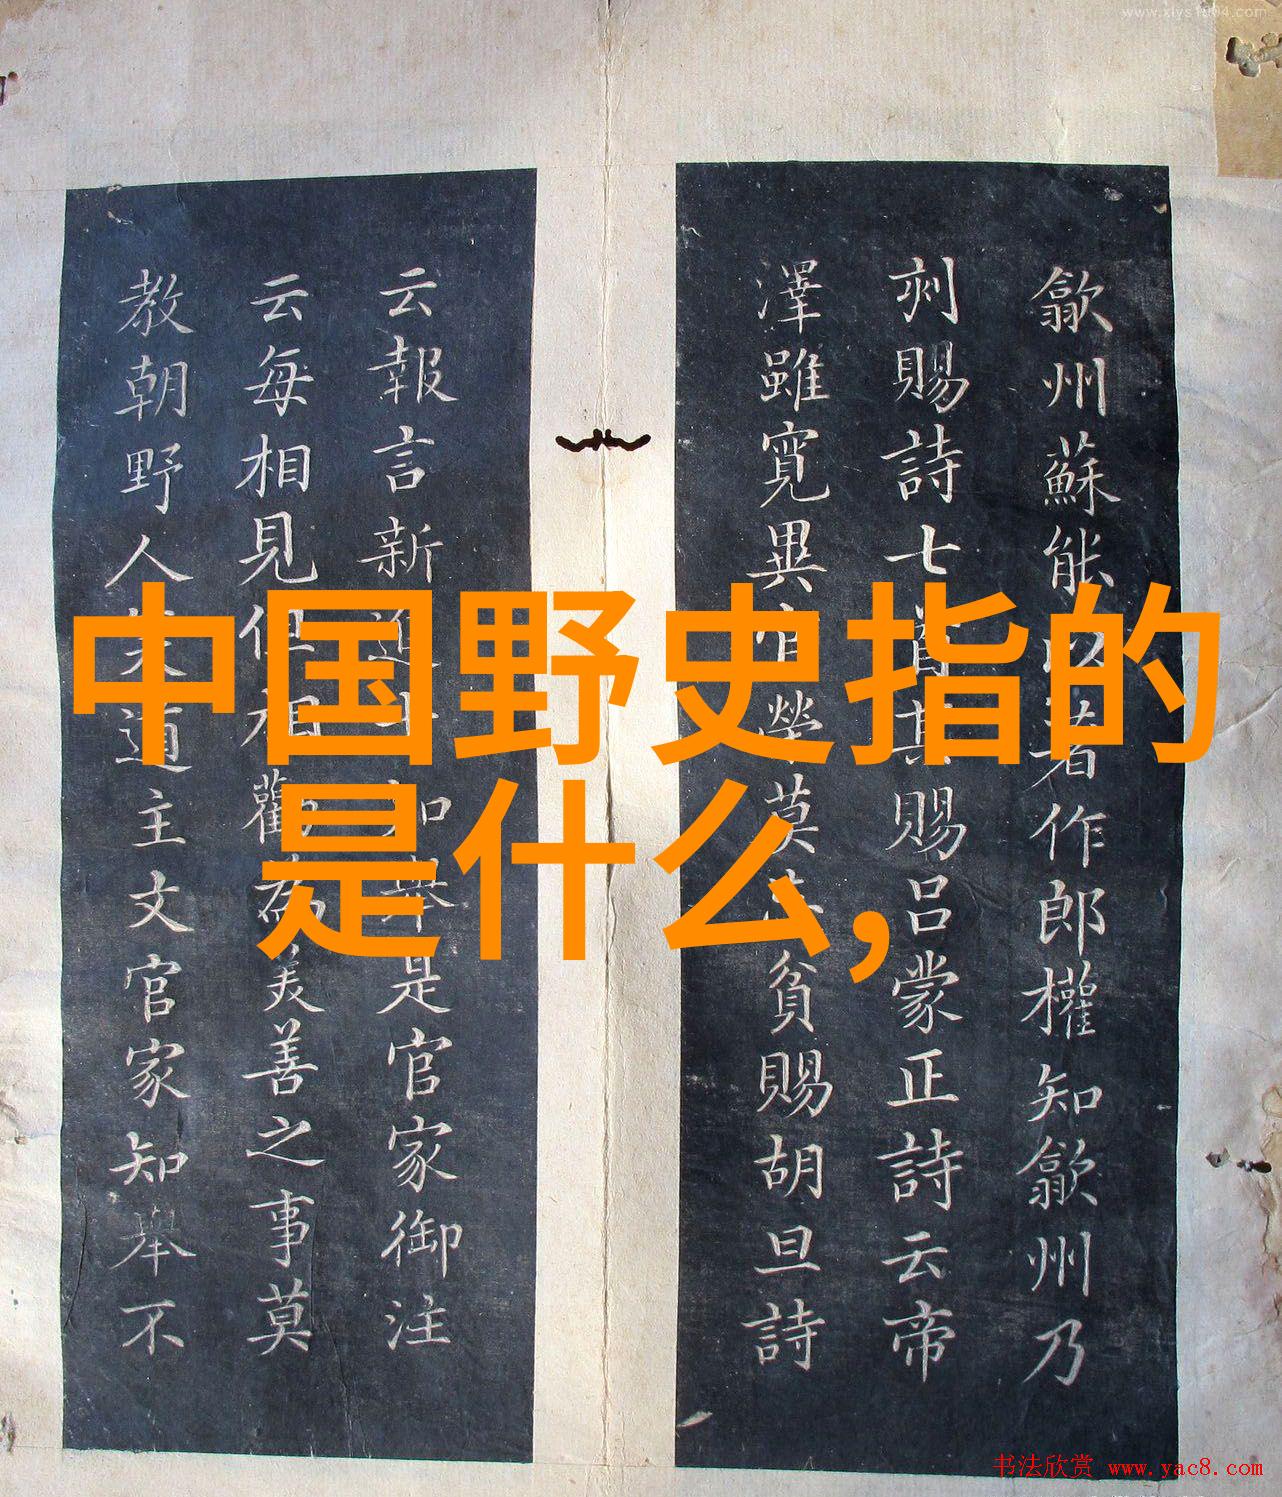 www.xlys1904.com
中国野史指的
是什么,
歙州蘇能以著作郎權知歙州乃
刺賜詩七首其賜呂蒙正詩云帝
澤雖寬異
莫
貧賜胡旦詩
云報言新進士知舉是官家御注
云每相見但相勸為美善之事莫
教朝野人笑道主文官家知舉不
书法欣赏 www.yac8.com